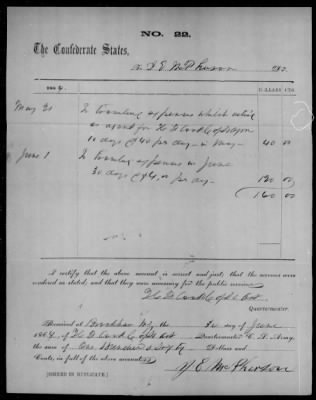 NO. 22.
The Confederate States,
To J E McPherson DR.
186 4. DOLLARS CTS.
May 31 To traveling expenses whilst acting
as agent for
10 days @ 40 per day - in May - 40 00
June 1 To traveling expenses in June
30 days @ 4,00 per day - 120 00
160 00
I certify that the above account is correct and just; that the services were
rendered as stated, and that they were necessary for the public service.
QUARTERMASTER.
Received at the day of June
1864, of Quartermaster C. S. Army,
the sum of One Hundred & Sixty Dollars and
Cents, in full of the above account.
J E McPherson
[SIGNED IN DUPLICATE.]